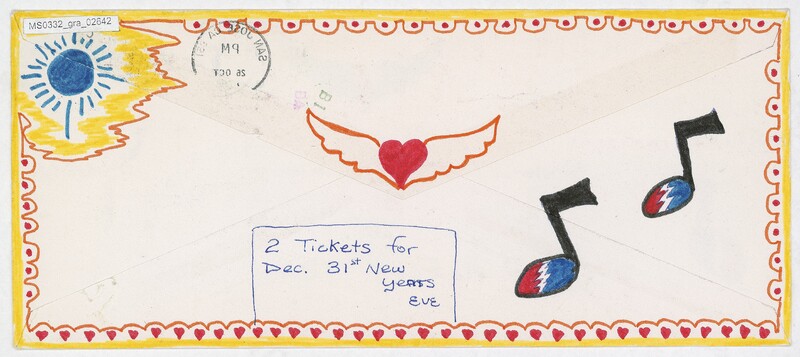 MS0332_gra_02642
SAN JOSE CA 951
PM
26 OCT
B1
2 Tickets for
Dec. 31st New
years
EVE